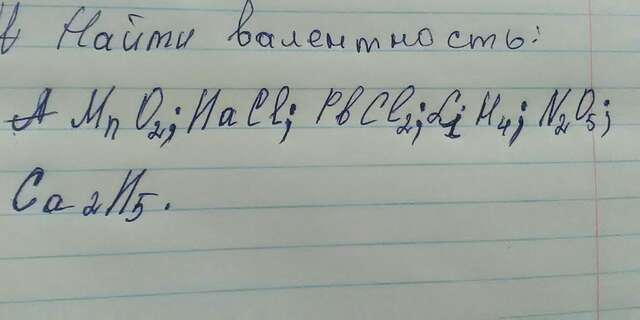 в Найти валентность:
MnO2; NaCl; PbCl2; H4; N2O5;
Ca2N5.